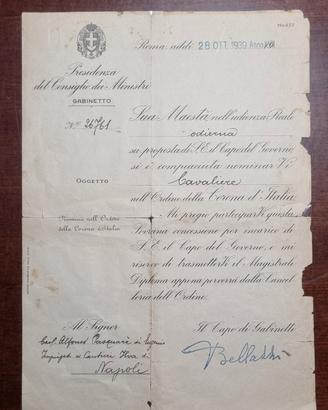 Mod. 52
Roma, addì 28 OTT. 1939 Anno XVII
Presidenza
del Consiglio dei Ministri
GABINETTO
N° 26761
Sua Maestà nell'udienza Reale
odierna
su proposta di S.E. il Capo del Governo
si è compiaciuta nominarVi
OGGETTO
Cavaliere
nell'Ordine della Corona d'Italia
Mi pregio parteciparVi questa
Nomina nell'Ordine
della Corona d'Italia
Sovrana concessione per incarico di
S. E. il Capo del Governo, e mi
riservo di trasmetterVi il Magistrale
Diploma appena perverrà dalla Cancel-
leria dell'Ordine.
Al Signor
Cav. Alfonso Pasquarè di Eugenio
Impieg. a Cantieri Ilva di
Napoli
Il Capo di Gabinetto